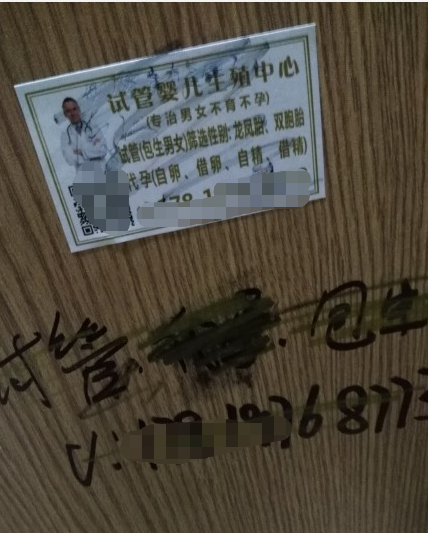 试管婴儿生殖中心
(专治男女不育不孕)
试管(包生男女)筛选性别:龙凤胎、双胞胎
代孕(自卵、借卵、自精、借精)
试管
包生
V: